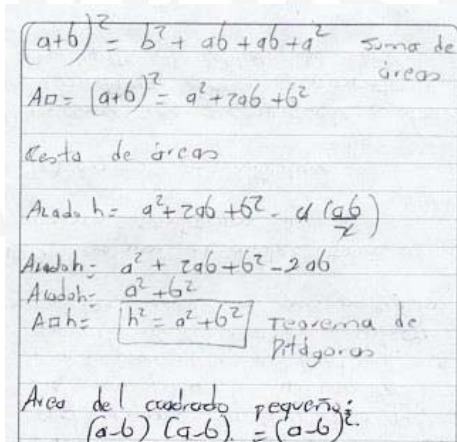 (a+b)² = b² + ab + ab + a² Suma de áreas
A□ = (a+b)² = a² + 2ab + b²
Resta de áreas
Alado h = a² + 2ab + b² - 4 (ab/2)
Alado h = a² + 2ab + b² - 2ab
Alado h = a² + b²
A□h = h² = a² + b² Teorema de Pitágoras
Area del cuadrado pequeño:
(a-b) (a-b) = (a-b)²